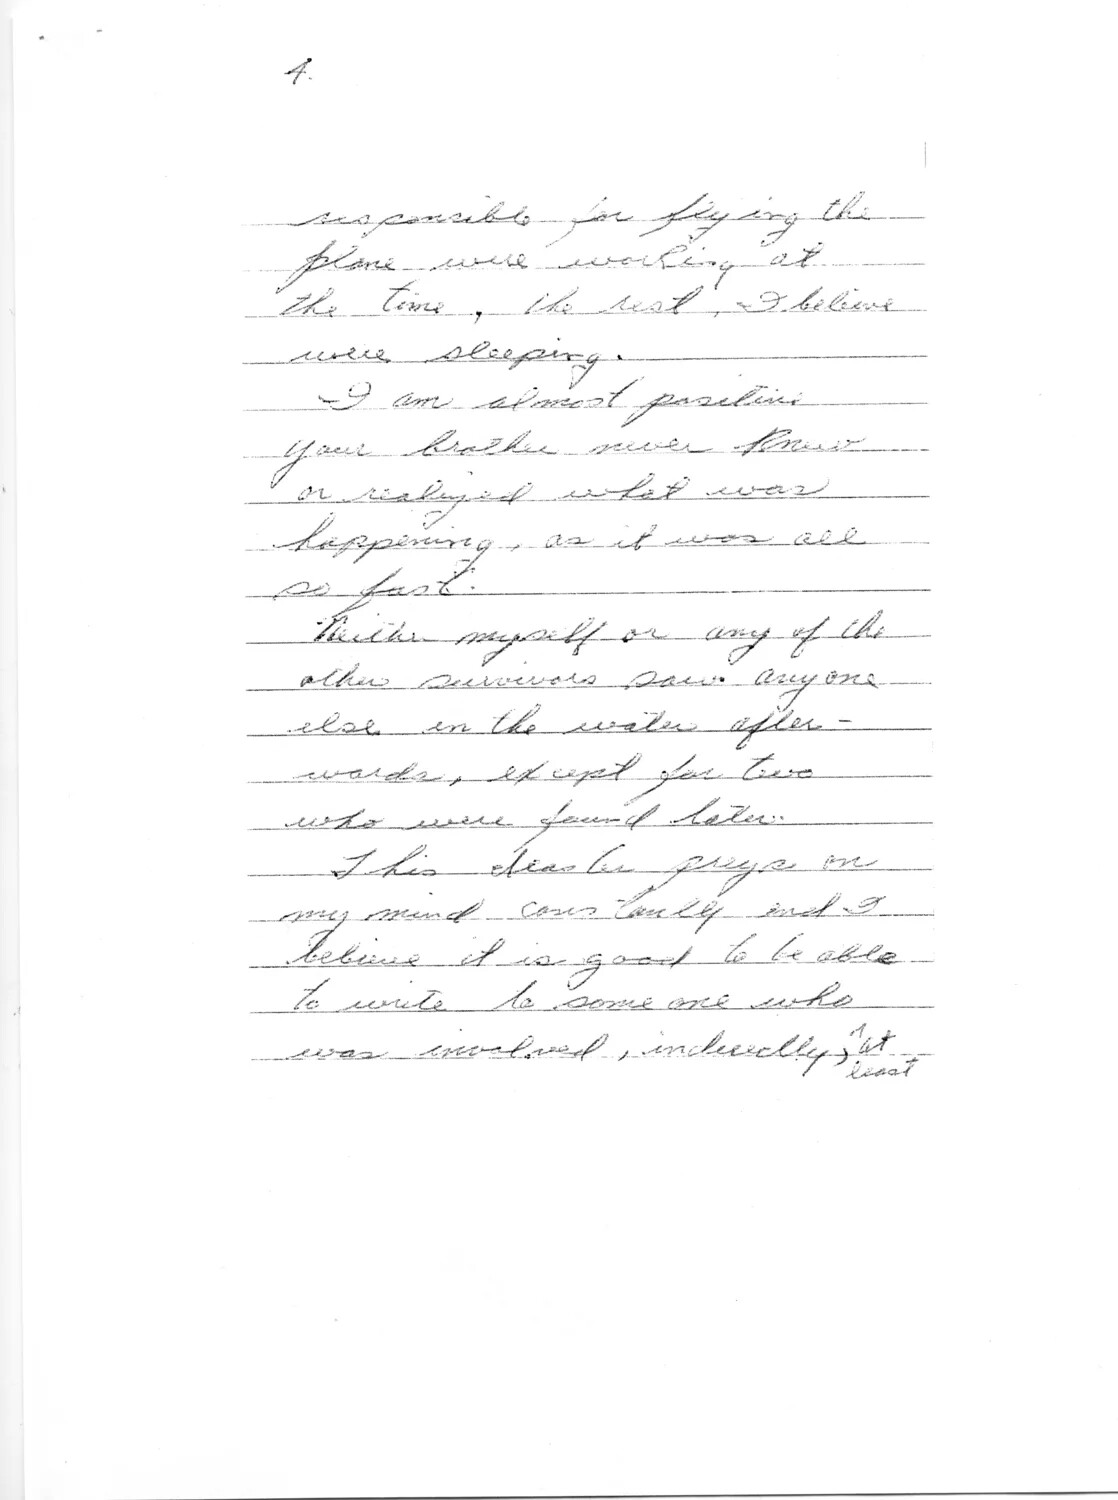 4.
responsible for flying the
plane were working at
the time, the rest, I believe
were sleeping.
I am almost positive
your brother never knew
or realized what was
happening, as it was all
so fast.
Neither myself or any of the
other survivors saw anyone
else in the water after-
wards, except for two
who were found later.
This disaster preys on
my mind constantly and I
believe it is good to be able
to write to some one who
was involved, indirectly, at
least